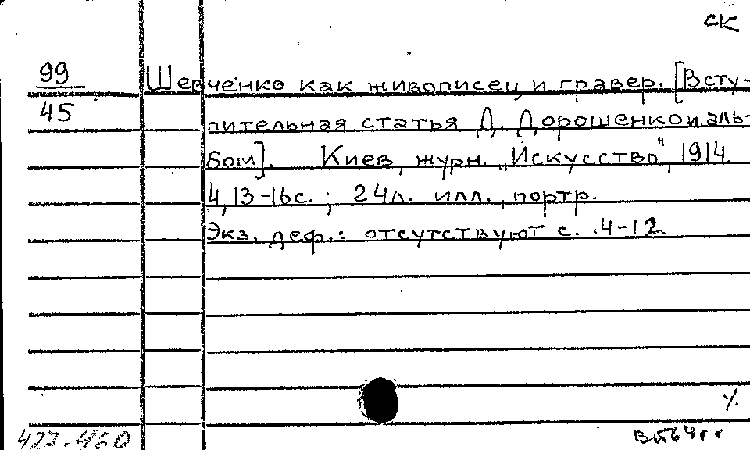 СК
99
45
Шевченко как живописец и гравер. [Всту-
пительная статья Д. Дорошенко и аль-
бом]. Киев, журн. "Искусство", 1914.
4,13-16с.; 24л. илл., портр.
Экз. деф.: отсутствуют с. 4-12